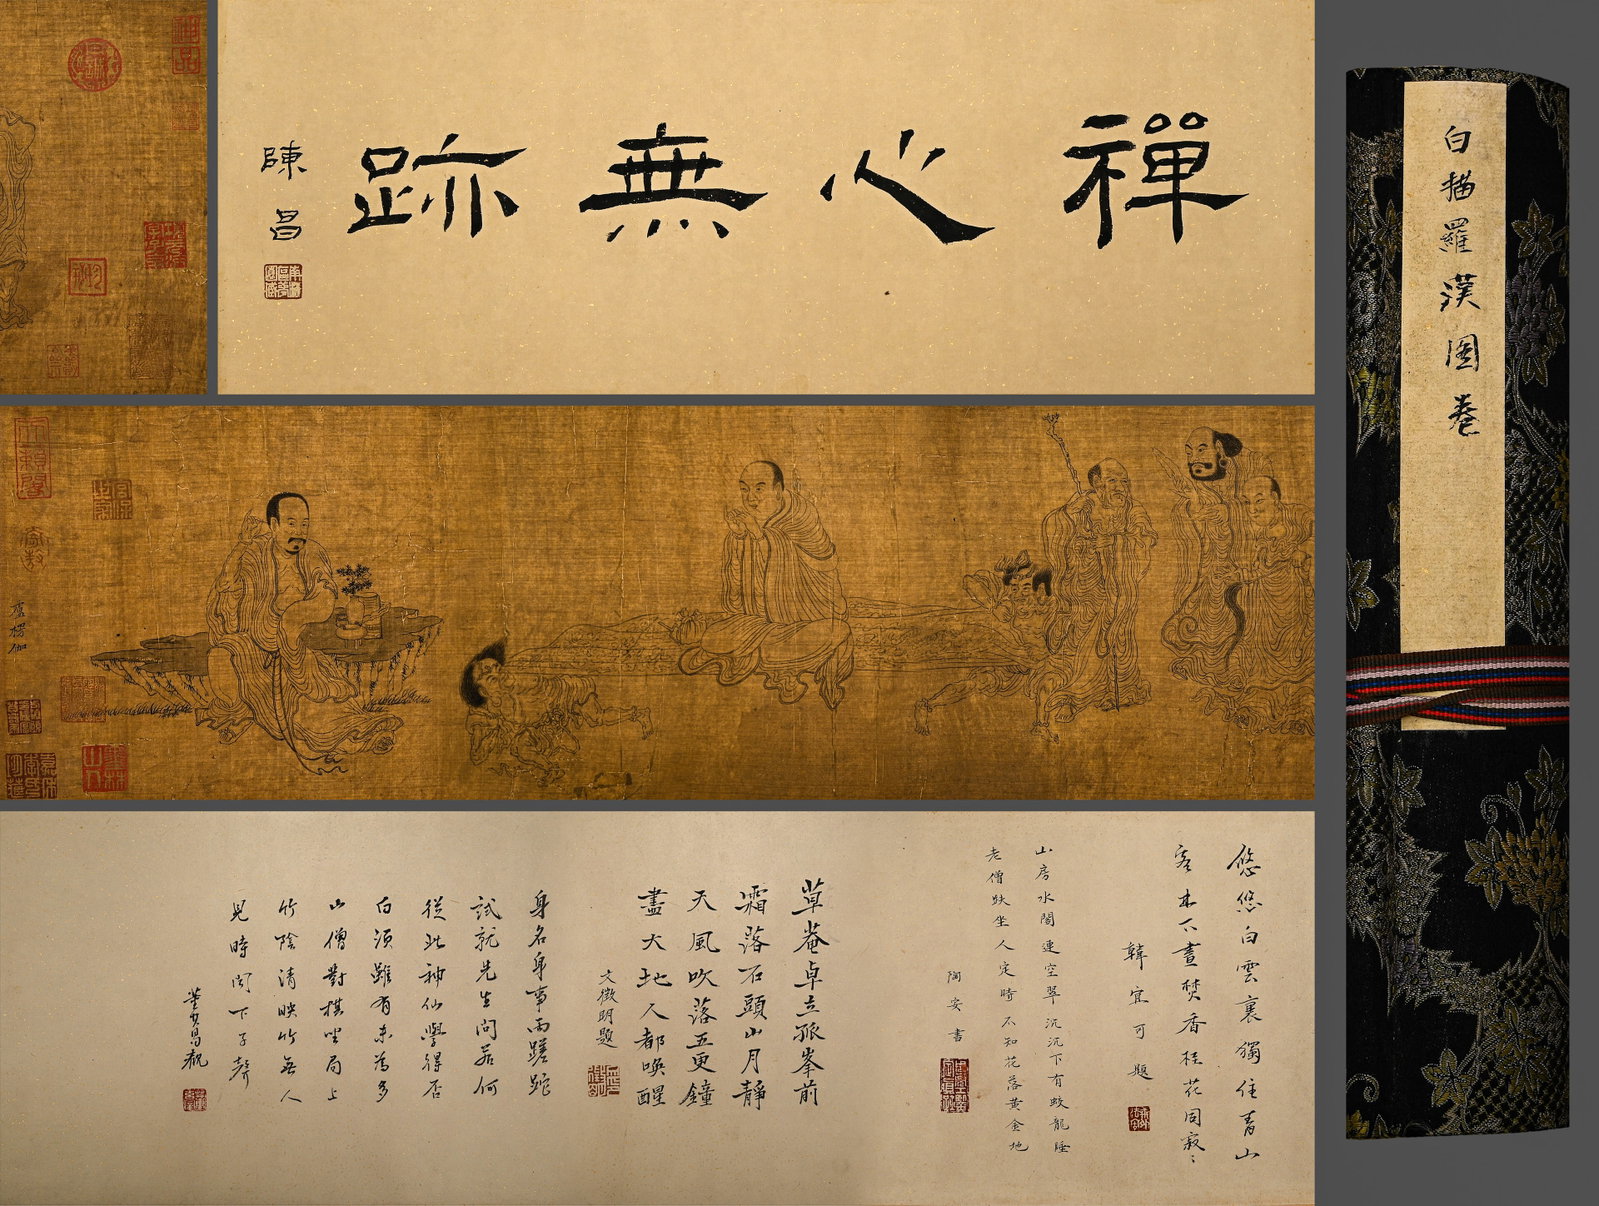 禪心無跡
陳昌
白描羅漢圖卷
盧楞伽
悠悠白雲裏獨住青山
客木下晝焚香桂花同寂〻
韓宜可題
山房水閣連空翠沉沉下有蛟龍睡
老僧趺坐入定時不知花落黃金地
陶安書
草菴卓立孤峯前
霜落石頭山月靜
天風吹落五更鐘
盡大地人都喚醒
文徵明題
身名身事兩蹉跎
試就先生問若何
從此神仙學得否
白須雖有未為多
山僧對棋坐局上
竹陰清映竹無人
見時聞下子聲
董其昌觀